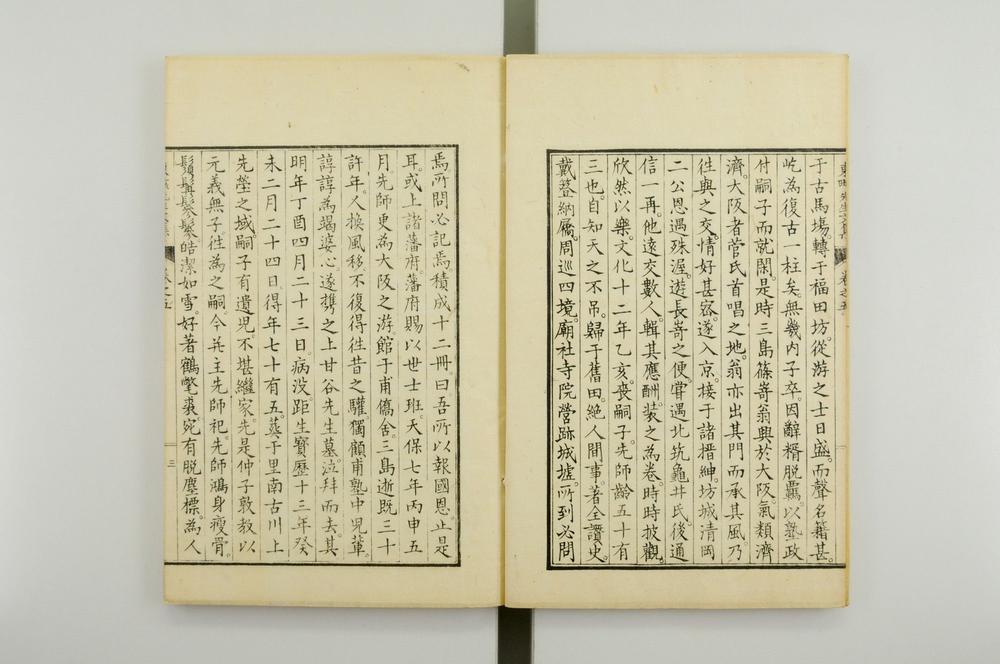 于古馬場。轉于福田坊。從游之士日盛。而聲名籍甚。
屹為復古一柱矣。無幾內子卒。因辭糈脫羈。以塾政
付嗣子而就閑。是時三島篠嵜翁興於大阪。氣類濟
濟。大阪者菅氏首唱之地。翁亦出其門而承其風。乃
徃與之交。情好甚密。遂入京。接于諸搢紳。坊城清岡
二公恩遇殊渥。遊長嵜之便。嘗遇北筑龜井氏後通
信一再。他遠交數人。輯其應酬。装之為卷。時時披觀。
欣然以樂。文化十二年乙亥。喪嗣子。先師齡五十有
三也。自知天之不吊。歸于舊田。絕人間事。著全讚史。
戴簦納屩。周巡四境。廟社寺院營跡城墟。所到必問
卷之五
焉。所問必記焉。積成十二冊。曰吾所以報國恩止是
耳。或上諸藩府。藩府賜以世士班。天保七年丙申五
月先師更為大阪之游。館于甫僑舍。三島逝既三十
許年。人換風移。不復得徃昔之驩。獨顧甫塾中児輩。
諄諄為竭婆心。遂携之上甘谷先生墓。泣拜而去。其
明年丁酉四月二十三日。病没。距生寶歷十三年癸
未二月二十四日。得年七十有五。葬于里南古川上
先塋之域。嗣子有遺児。不堪繼家。先是仲子敦敎以
元義無子徃為之嗣。今并主先師祀。先師鴻身瘦骨。
鬚鬢鬖鬖。皓潔如雪。好著鶴氅裘。宛有脫塵標。為人
三